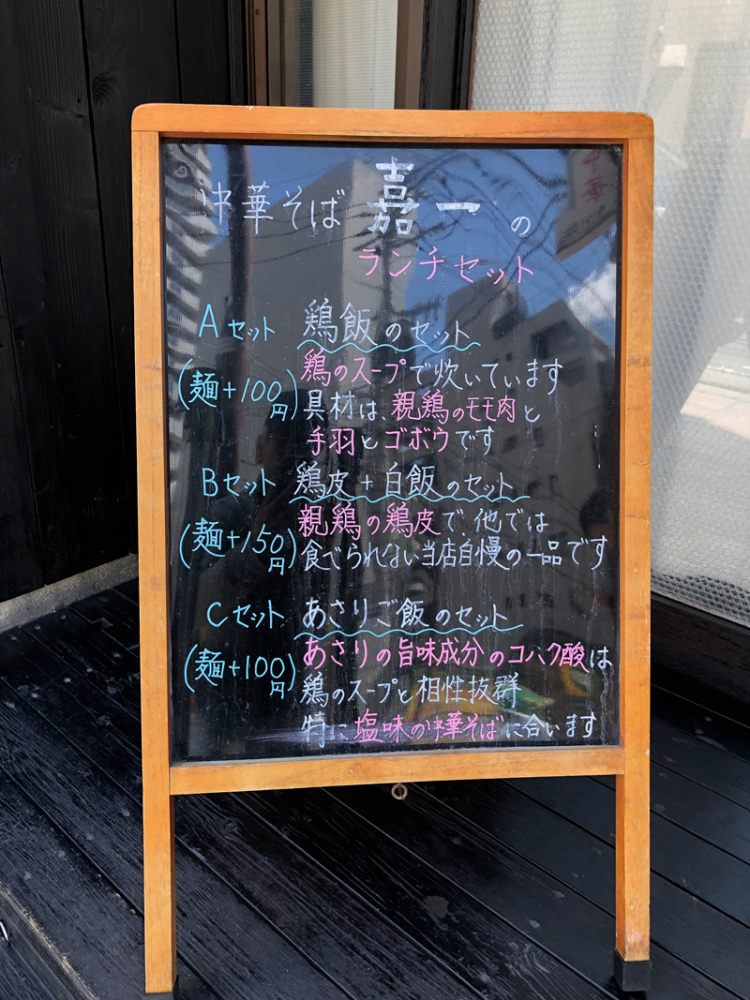 中華そば 嘉一の
ランチセット
Aセット 鶏飯のセット
(麺+100円) 鶏のスープで炊いています
具材は、親鶏のモモ肉と
手羽とゴボウです
Bセット 鶏皮+白飯のセット
(麺+150円) 親鶏の鶏皮で他では
食べられない当店自慢の一品です
Cセット あさりご飯のセット
(麺+100円) あさりの旨味成分のコハク酸は
鶏のスープと相性抜群
特に塩味の中華そばに合います